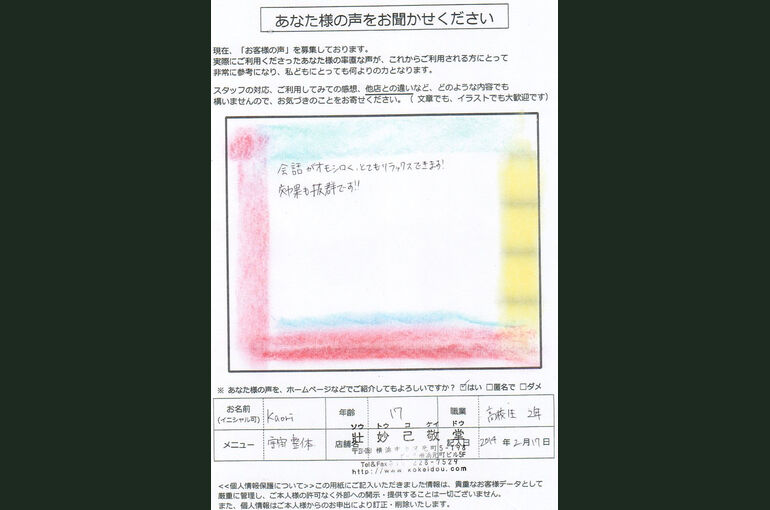 あなた様の声をお聞かせください
現在、「お客様の声」を募集しております。
実際にご利用くださったあなた様の率直な声が、これからご利用される方にとって
非常に参考になり、私どもにとっても何よりの力となります。
スタッフの対応、ご利用してみての感想、他店との違いなど、どのような内容でも
構いませんので、お気づきのことをお寄せください。（ 文章でも、イラストでも大歓迎です）
会話がオモシロく、とてもリラックスできます!
効果も抜群です!!
※ あなた様の声を、ホームページなどでご紹介してもよろしいですか？ ☑はい □匿名で □ダメ
お名前 (イニシャル可) Kaori 年齢 17 職業 高校生 2年
ソウ トウ コ ケイ ドウ
メニュー 宇宙整体 店舗名 壮 妙 己 敬 堂 記入日 2014 年 2 月 17 日
5-198
町ビル5F
Tel&Fax 228-7529
http://www.kokeidou.com
<<個人情報保護について>>この用紙にご記入いただきました情報は、貴重なお客様データとして
厳重に管理し、ご本人様の許可なく外部への開示・提供することは一切ございません。
また、個人情報はご本人様からのお申出により訂正・削除いたします。